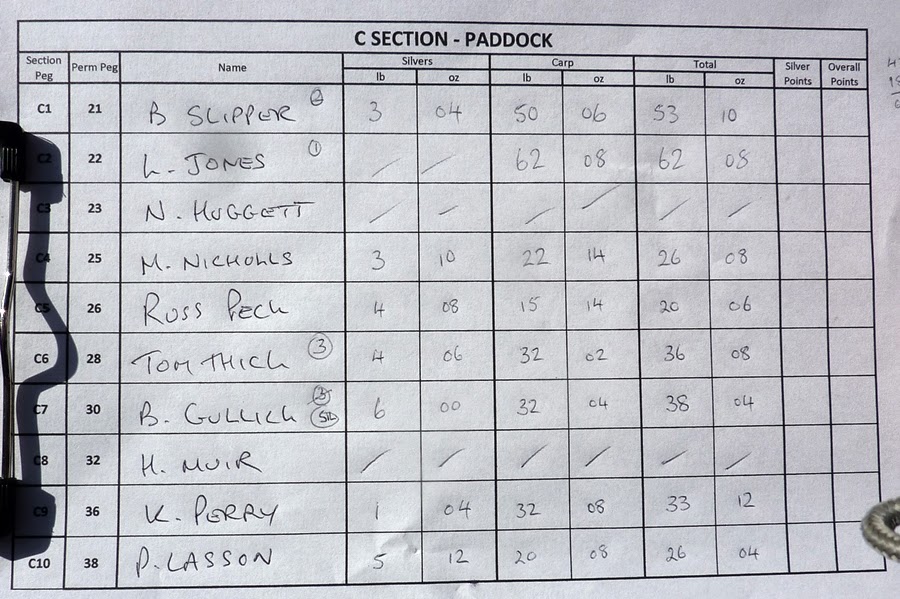 C SECTION - PADDOCK
Section Peg Perm Peg Name Silvers Carp Total Silver Points Overall Points
lb oz lb oz lb oz
C1 21 B SLIPPER 2 3 04 50 06 53 10
C2 22 L. JONES 1 / / 62 08 62 08
C3 23 N. HUGGETT / / / / / /
C4 25 M. NICHOLLS 3 10 22 14 26 08
C5 26 ROSS PECK 4 08 15 14 20 06
C6 28 TOM THICK 3 4 06 32 02 36 08
C7 30 B. GULLICK 6 00 32 04 38 04
C8 32 H. MUIR / / / / / /
C9 36 K. PERRY 1 04 32 08 33 12
C10 38 P. LASSON 5 12 20 08 26 04